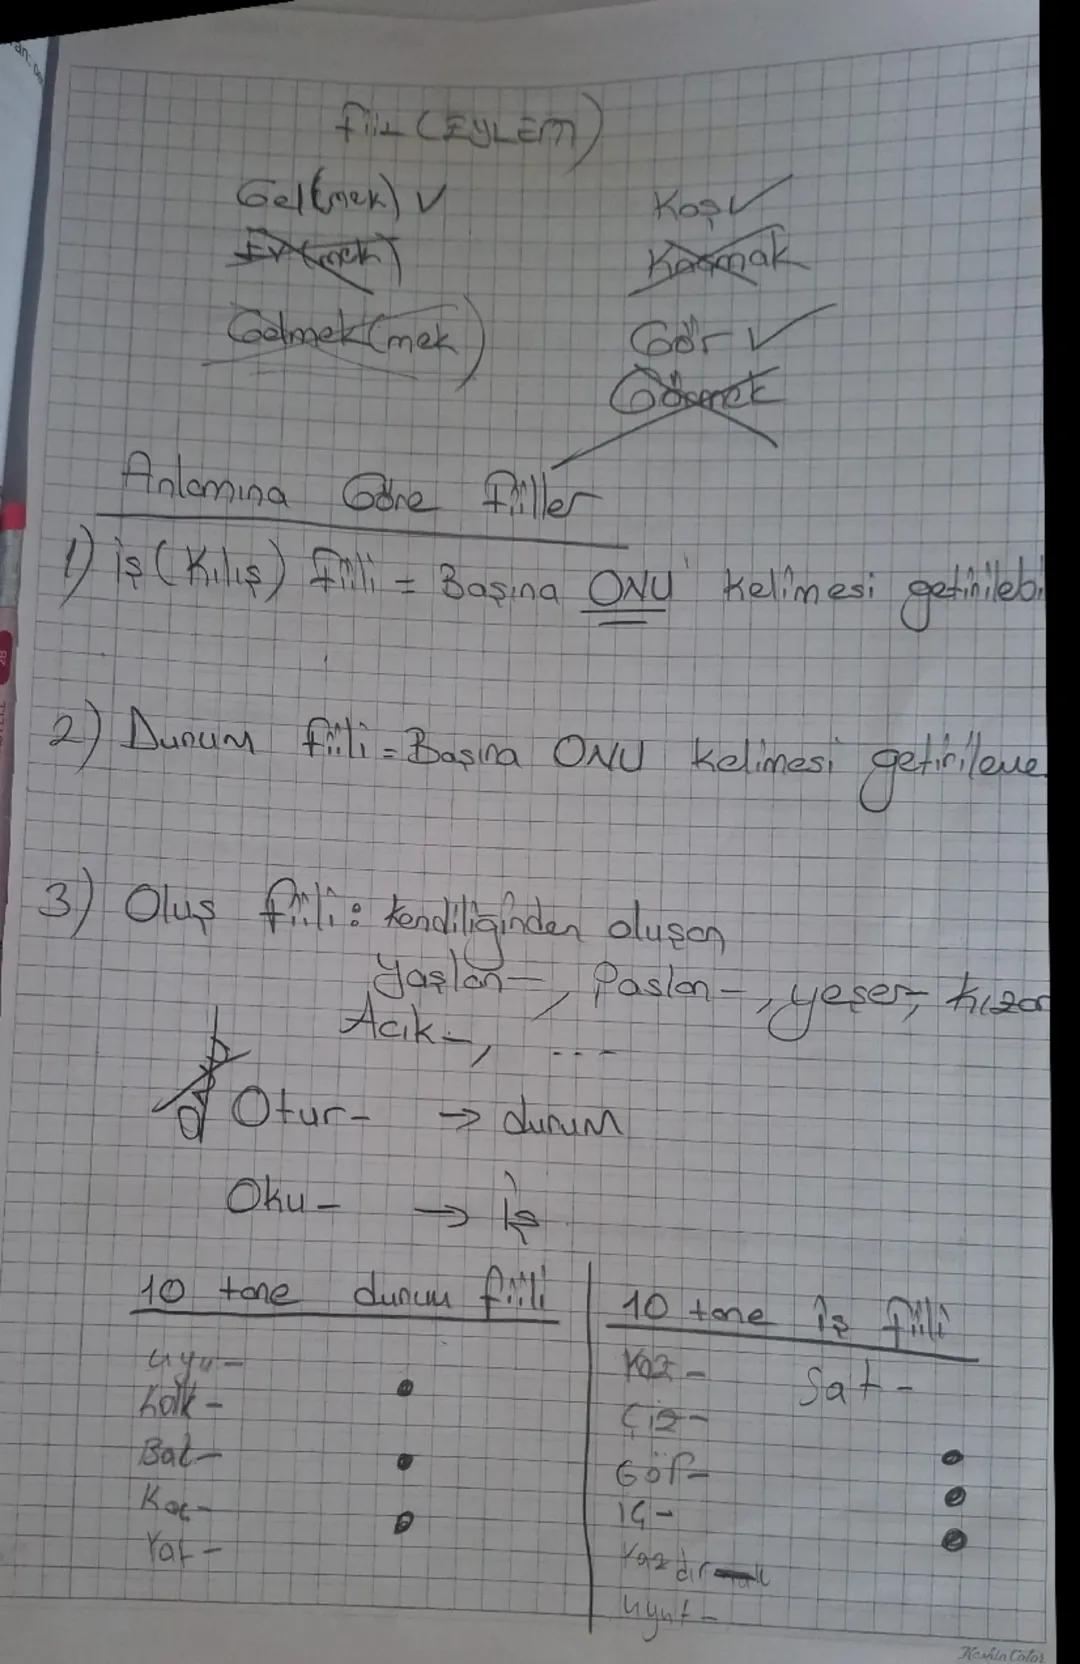 Fiil (EYLEM)
Gel(mek) ✓ Koş ✓
Ev(mek) Koşmak
Gelmek(mek) Gör ✓
Görmek
Anlamına Göre Fiiller
1) İş (Kılış) fiili = Başına ONU kelimesi getirilebi
2) Durum fiili = Başına ONU kelimesi getirileme
3) Oluş fiili: kendiliğinden oluşan
Yaşlan-, Paslan-, yeşer-, kızar
Acık-, ...
Otur- → durum
Oku- → İş
10 tane durum fiili
uyu-
Kalk-
Bat-
Kaç-
Yat-
10 tane İş fiili
Yaz- Sat-
Çiz-
Gör-
İç-
Yazdır
uyut-
Keskin Color